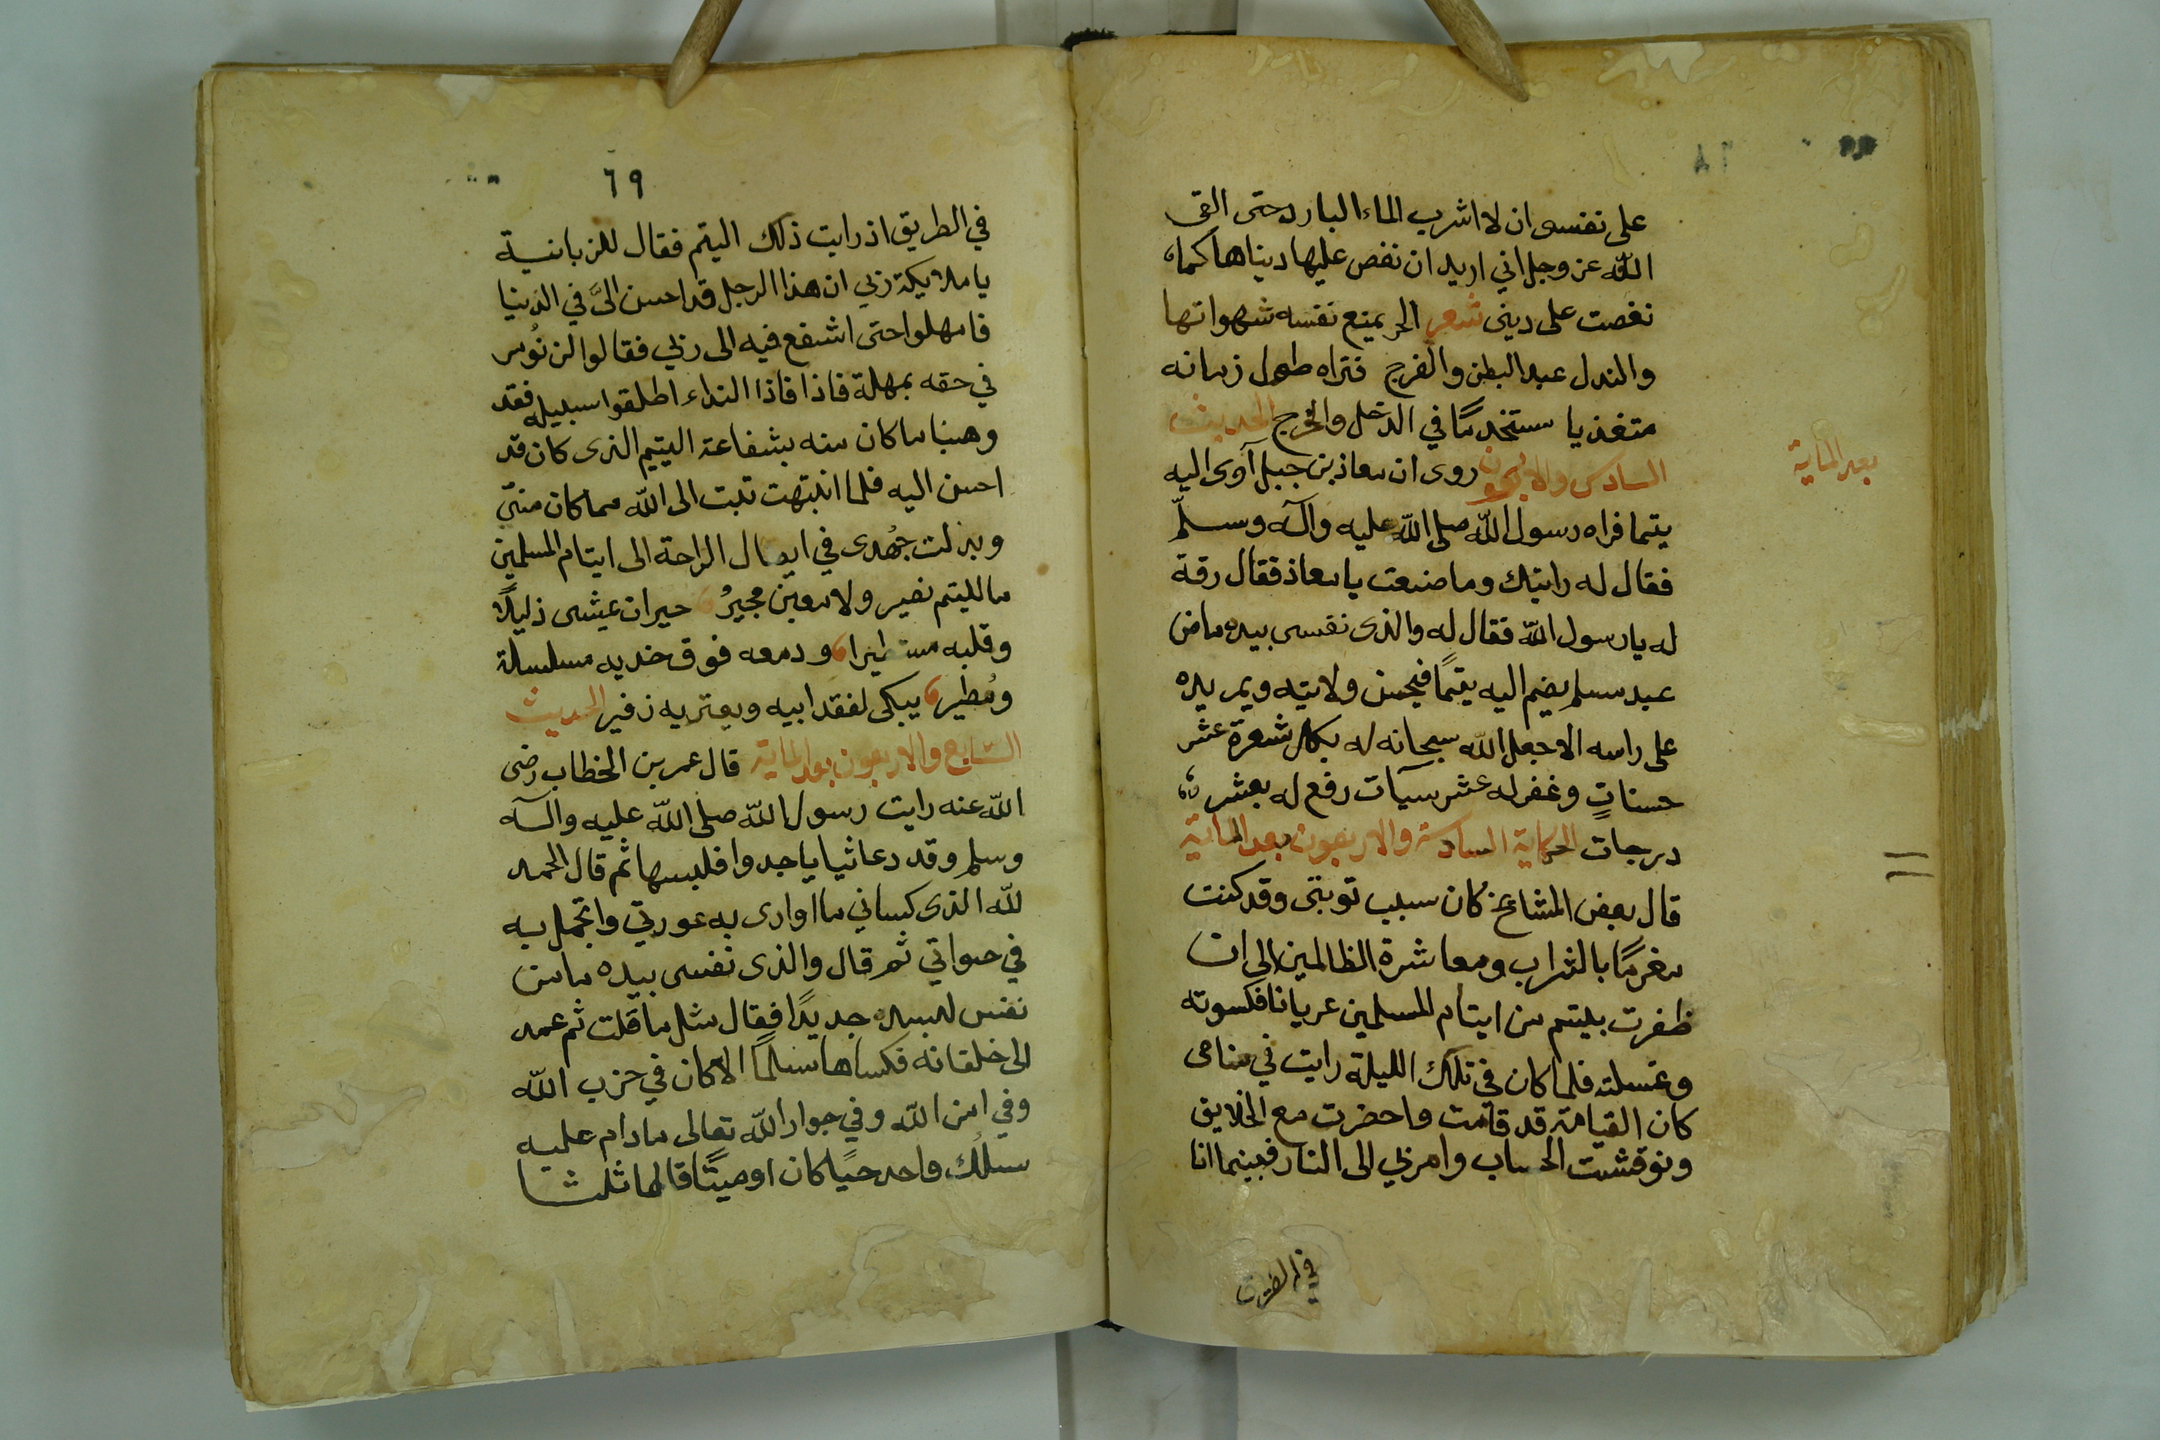 على نفسى ان لا اشرب الماء البارد حتى القى
الله عز وجل انى اريد ان نغص عليها دنياها كما
نغصت على دينى شعر الحر يمنع نفسه شهواتها
والنذل عبد البطن والفرج فتراه طول زمانه
متغذيا مستخدمًا في الدخل والخرج الحديث
السادس والاربعون روى ان معاذ بن جبل آوى اليه
بعد الماية
يتما فراه رسول الله صلى الله عليه وآله وسلم
فقال له رايتك وما صنعت يا معاذ فقال رقة
له يا رسول الله فقال له والذى نفسى بيده ما من
عبد مسلم يضم اليه يتمًا فيحسن ولايته ويمر يده
على راسه الا جعل الله سبحانه له بكل شعرة عشر
حسناتٍ وغفر له عشر سيآت رفع له بعشر
درجات الحكاية السادسة والاربعون بعد الماية
قال بعض المشائخ كان سبب توبتى وقد كنت
مغرمًا بالشراب ومعاشرة الظالمين الى ان
ظفرت بيتيم من ايتام المسلمين عريانا فكسوته
وغسلته فلما كان في تلك الليلة رايت في منامى
كان القيامة قد قامت واحضرت مع الخلايق
ونوقشت الحساب وامر بى الى النار فبينما انا
في الطريق
٦٩
في الطريق اذ رايت ذلك اليتم فقال للزبانية
يا ملائكة ربي ان هذا الرجل قد احسن الىَّ في الدنيا
فامهلوا حتى اشفع فيه الى ربي فقالوا لن نُومر
في حقه بمهلة فاذا فاذا النداء اطلقوا سبيله فقد
وهبنا ما كان منه بشفاعة اليتيم الذى كان قد
احسن اليه فلما انتبهت تبت الى الله مما كان منى
وبذلت جُهدى في ايصال الراحة الى ايتام المسلمين
ما لليتم نصير ولا معين مجيرُ حيران عيشى ذليلًا
وقلبه مستطيرا ودمعه فوق خديه مسلسلة
ومُطير يبكى لفقد ابيه ويعتريه زفير الحديث
السابع والاربعون بعد الماية قال عمر بن الخطاب رضى
الله عنه رايت رسول الله صلى الله عليه وآله
وسلم وقد دعا ثيابا جددا فلبسها ثم قال الحمد
لله الذى كسانى ما اوارى به عورتي واتجمل به
في حواتي ثم قال والذى نفسى بيده ما من
نفس لبسه جديدًا فقال مثل ما قلت ثم عمد
الى خلقانه فكساها مسلمًا الا كان في حزب الله
وفي امن الله وفي جوار الله تعالى ما دام عليه
سلك واحد حيًا كان او ميتًا قالها ثلثا